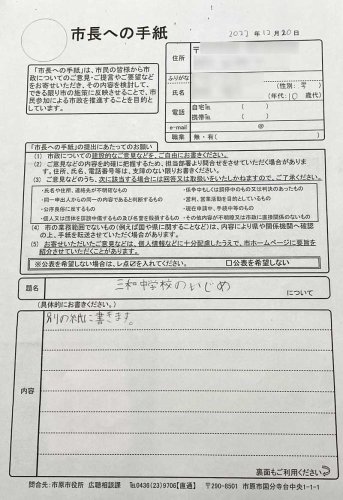 市長への手紙
2022年12月20日
「市長への手紙」は、市民の皆様から市
政についてのご意見・ご提言やご要望など
をお寄せいただき、その内容を検討して、
できる限り市の施策に反映させることで、市
民参加による市政を推進することを目的と
しています。
住所
〒
ふりがな
氏名
(性別: 男)
(年代: 10 歳代)
電話
自宅℡ ( )
携帯℡ ( )
e-mail
@
職業
無・有( )
「市長への手紙」の提出にあたってのお願い
(1) 市政についての建設的なご意見などを、ご自由にお書きください。
(2) ご意見などの内容を的確に把握するため、担当部署より問合せをさせていただく場合がありま
す。住所、氏名、電話番号等は、支障のない限りお書きください。
(3) ご意見などのうち、次に該当する場合には回答又は取扱いをいたしかねますので、ご了承ください。
・氏名や住所、連絡先が不明なもの
・係争中もしくは調停中のもの又は判決のあったもの
・同一申出人からの同一の内容であると判断するもの
・営利、営業活動を目的としているもの
・公序良俗に反するもの
・現在申請中、手続中等のもの
・個人又は団体を誹謗中傷するもの及び名誉を毀損するもの
・その他内容が不明瞭又は市政に直接関係のないもの
(4) 市の業務範囲でないもの(例えば国や県に関することなど)は、内容により県や関係機関へ確認
の上、手紙を転送させていただく場合があります。
(5) お寄せいただいたご意見などは、個人情報などに十分配慮したうえで、市ホームページに要旨を
紹介させていただくことがあります。
※公表を希望しない場合は、レ点☑を入れてください。 □公表を希望しない
題名
三和中学校のいじめ
について
(具体的にお書きください。)
内容
別の紙に書きます。
裏面もご利用ください
問合先:市原市役所 広聴相談課 ℡0436(23)9706【直通】 〒290-8501 市原市国分寺台中央1-1-1